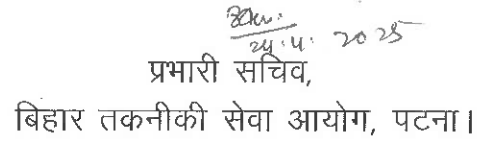 24.4.2025
प्रभारी सचिव,
बिहार तकनीकी सेवा आयोग, पटना।